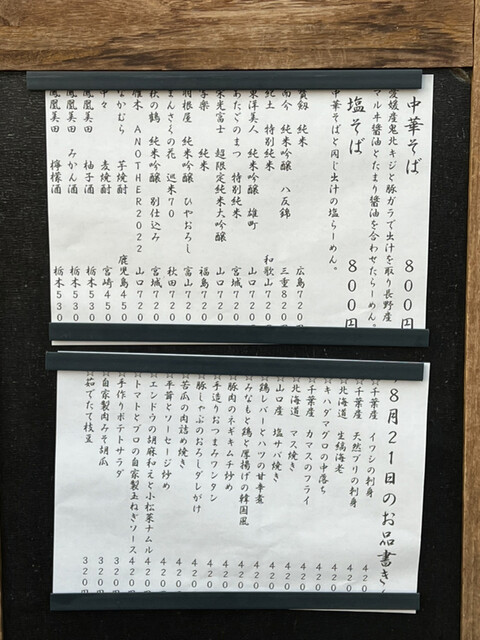 中華そば 800円
愛媛産鬼北キジと豚ガラで出汁を取り長野産
マルヰ醤油とたまり醤油を合わせたらーめん。
塩そば 800円
中華そばと同じ出汁の塩らーめん。
賀儀 純米 広島720
而今 純米吟醸 八反錦 三重820
紀土 特別純米 和歌山720
東洋美人 純米吟醸 雄町 山口720
あたごのまつ 特別純米 宮城720
栄光冨士 超限定純米大吟醸 山口720
写楽 純米 福島720
羽根屋 純米吟醸 ひやおろし 富山720
まんさくの花 巡米70 秋田720
萩の鶴 純米吟醸 別仕込み 宮城720
雁木 ANOTHER2022 山口720
なかむら 芋焼酎 鹿児島450
中々 麦焼酎 宮崎450
鳳凰美田 柚子酒 栃木530
鳳凰美田 みかん酒 栃木530
鳳凰美田 檸檬酒 栃木530
8月21日のお品書き
☆千葉産 イワシの刺身 420
☆千葉産 天然ブリの刺身 420
☆北海道 生縞海老 420
☆キハダマグロの中落ち 420
☆千葉産 カマスのフライ 420
☆北海道 マス焼き 420
☆山口産 塩サバ焼き 420
☆鶏レバーとハツの甘辛煮 420
☆みなもと鶏と厚揚げの韓国風 420
☆豚肉のネギキムチ炒め 420
☆手造りおつまみワンタン 420
☆豚しゃぶのおろしダレがけ 420
☆苦瓜の肉詰め焼き 420
☆平茸とソーセージ炒め 420
☆エンドウの胡麻和えと小松菜ナムル 420
☆トマトとプロの自家製玉ねぎソース 420円
☆手作りポテトサラダ 320円
☆自家製肉みそ胡瓜 320円
☆茹でたて枝豆 320円